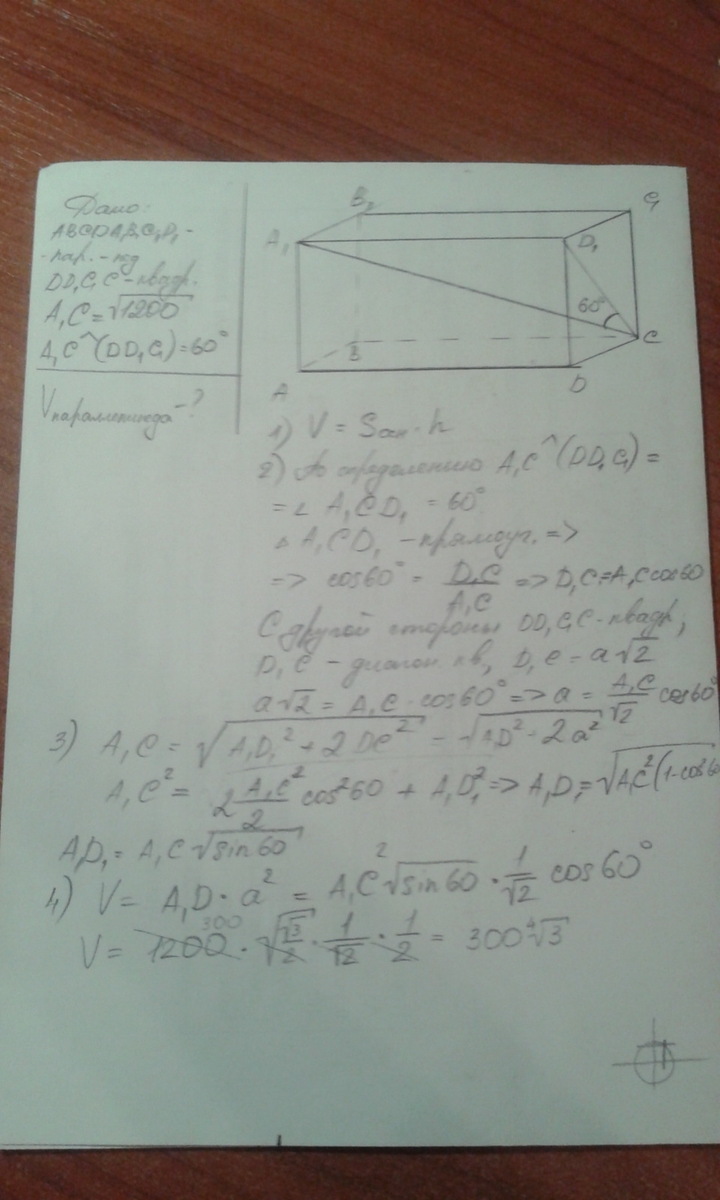 Дано:
ABCDA₁B₁C₁D₁ -
- пар. - пед
DD₁C₁C - квадр.
A₁C = √1200
A₁C^(DD₁C₁) = 60°
Vпараллепипеда - ?
B₁
C₁
A₁
D₁
60°
B
C
A
D
1) V = Sосн · h
2) По определению A₁C^(DD₁C₁) =
= ∠ A₁CD₁ = 60°
△ A₁CD₁ - прямоуг. =>
=> cos60° = D₁C/A₁C => D₁C = A₁C cos60
С другой стороны DD₁C₁C - квадр,
D₁C - диагон. кв, D₁C = a√2
a√2 = A₁C · cos60° => a = A₁C/√2 cos60°
3) A₁C = √(A₁D₁² + 2DC²) = √(AD² · 2a²)
A₁C² = 2 A₁C²/2 cos²60 + A₁D₁² => A₁D₁ = √(A₁C²(1-cos²60
A₁D₁ = A₁C √(sin60)
4) V = A₁D · a² = A₁C² √(sin60) · 1/√2 cos60°
300
V = 1200 · √(√3/2) · 1/√2 · 1/2 = 300 ⁴√3